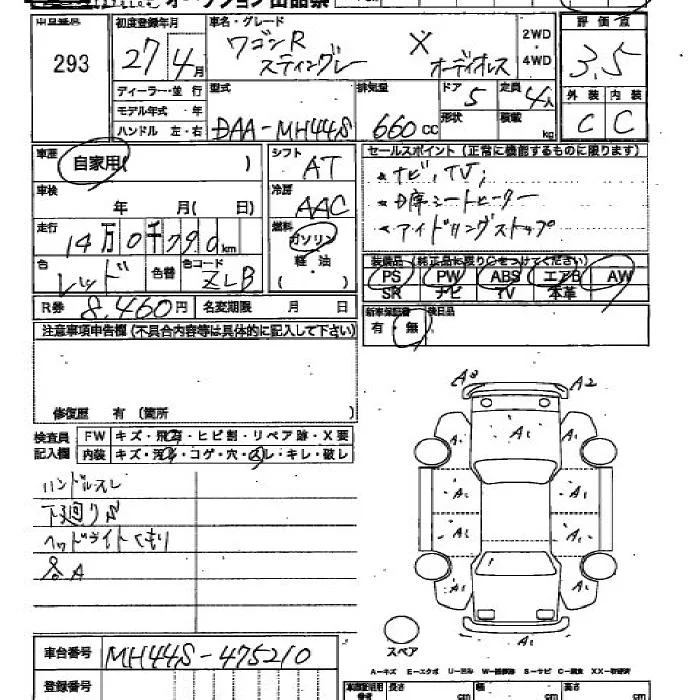 オークション出品票
車名・グレード
初度登録年月
評価点
293
27年4月
ワゴンR
スティングレー
X
オーディオレス
2WD
・
4WD
3.5
ディーラー・並行
型式
排気量
ドア
定員
外装
内装
モデル年式・年
5
4人
ハンドル 左・右
DAA-MH44S
660cc
形状
積載
kg
C
C
車歴
自家用( )
シフト
AT
セールスポイント(正常に機能するものに限ります)
車検
年 月( 日)
冷房
AAC
・ナビ、TV;
・D席シートヒーター
・アイドリングストップ
走行
14万0千790km
燃料
ガソリン
軽油
( )
色
レッド
色番
色コード
ZLB
装備品(純正品に限り○をつけてください)
PS
PW
ABS
エアB
AW
SR
ナビ
TV
本革
R券
8,460円
名変期限 月 日
新車保証書
有・無
後日品
注意事項申告欄(不具合内容等は具体的に記入して下さい)
修復歴 有(箇所 )
検査員
記入欄
FW
キズ・飛石・ヒビ割・リペア跡・X要
内装
キズ・汚れ・コゲ・穴・スレ・キレ・破レ
ハンドルスレ
下廻りS
ヘッドライトくもり
各A
A2
A1
A1
A1
A1
A1
A1
A1
A1
A1
A1
スペア
A1
車台番号
MH44S-475210
A-キズ E-エクボ U-凹み S-サビ
登録番号
長さ
cm
幅
cm
高さ
cm